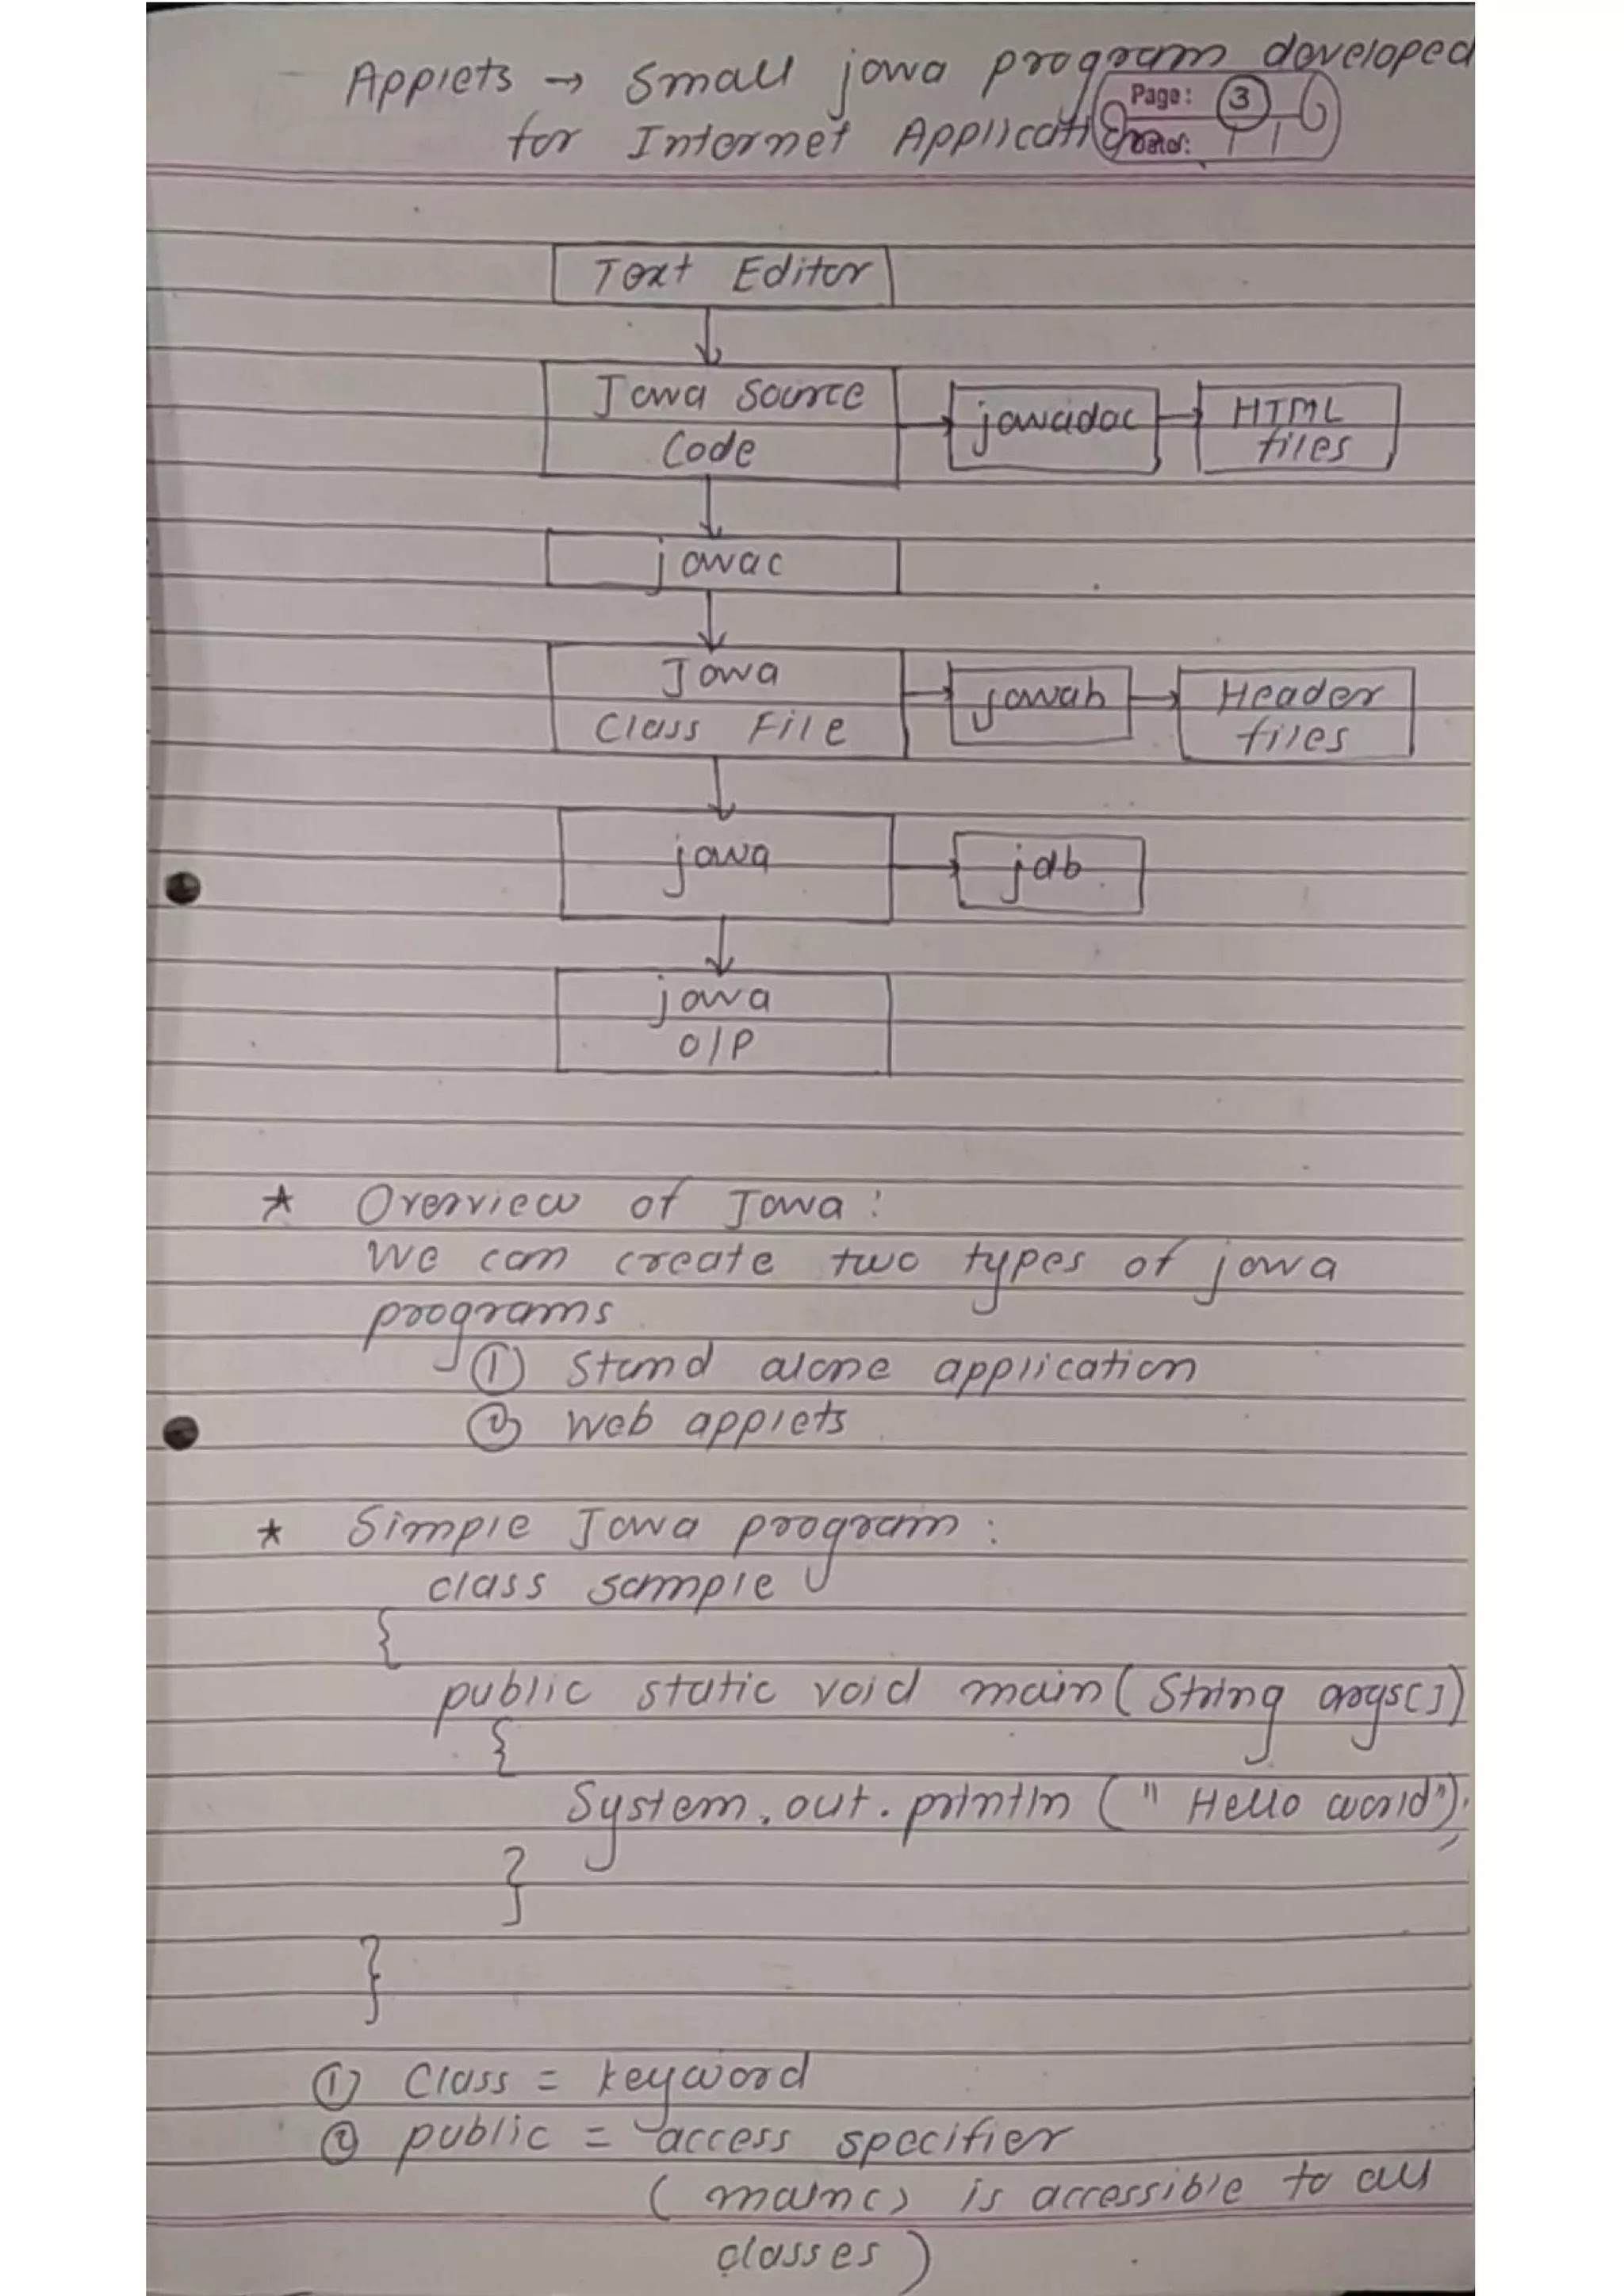 Applets → Small java program developed
for Internet Applications
Page: 3
Date: / /
Text Editor
Java Source
Code
javadoc
HTML
files
javac
Java
Class File
javah
Header
files
java
jdb
java
O/P
* Overview of Java:
We can create two types of java
programs
① Stand alone application
② Web applets
* Simple Java program:
class sample
{
public static void main(String args[])
{
System.out.println (" Hello world");
}
}
① Class = keyword
② public = access specifier
(main() is accessible to all
classes)